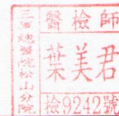 三軍總醫院松山分院
醫檢師
葉美君
檢9242號